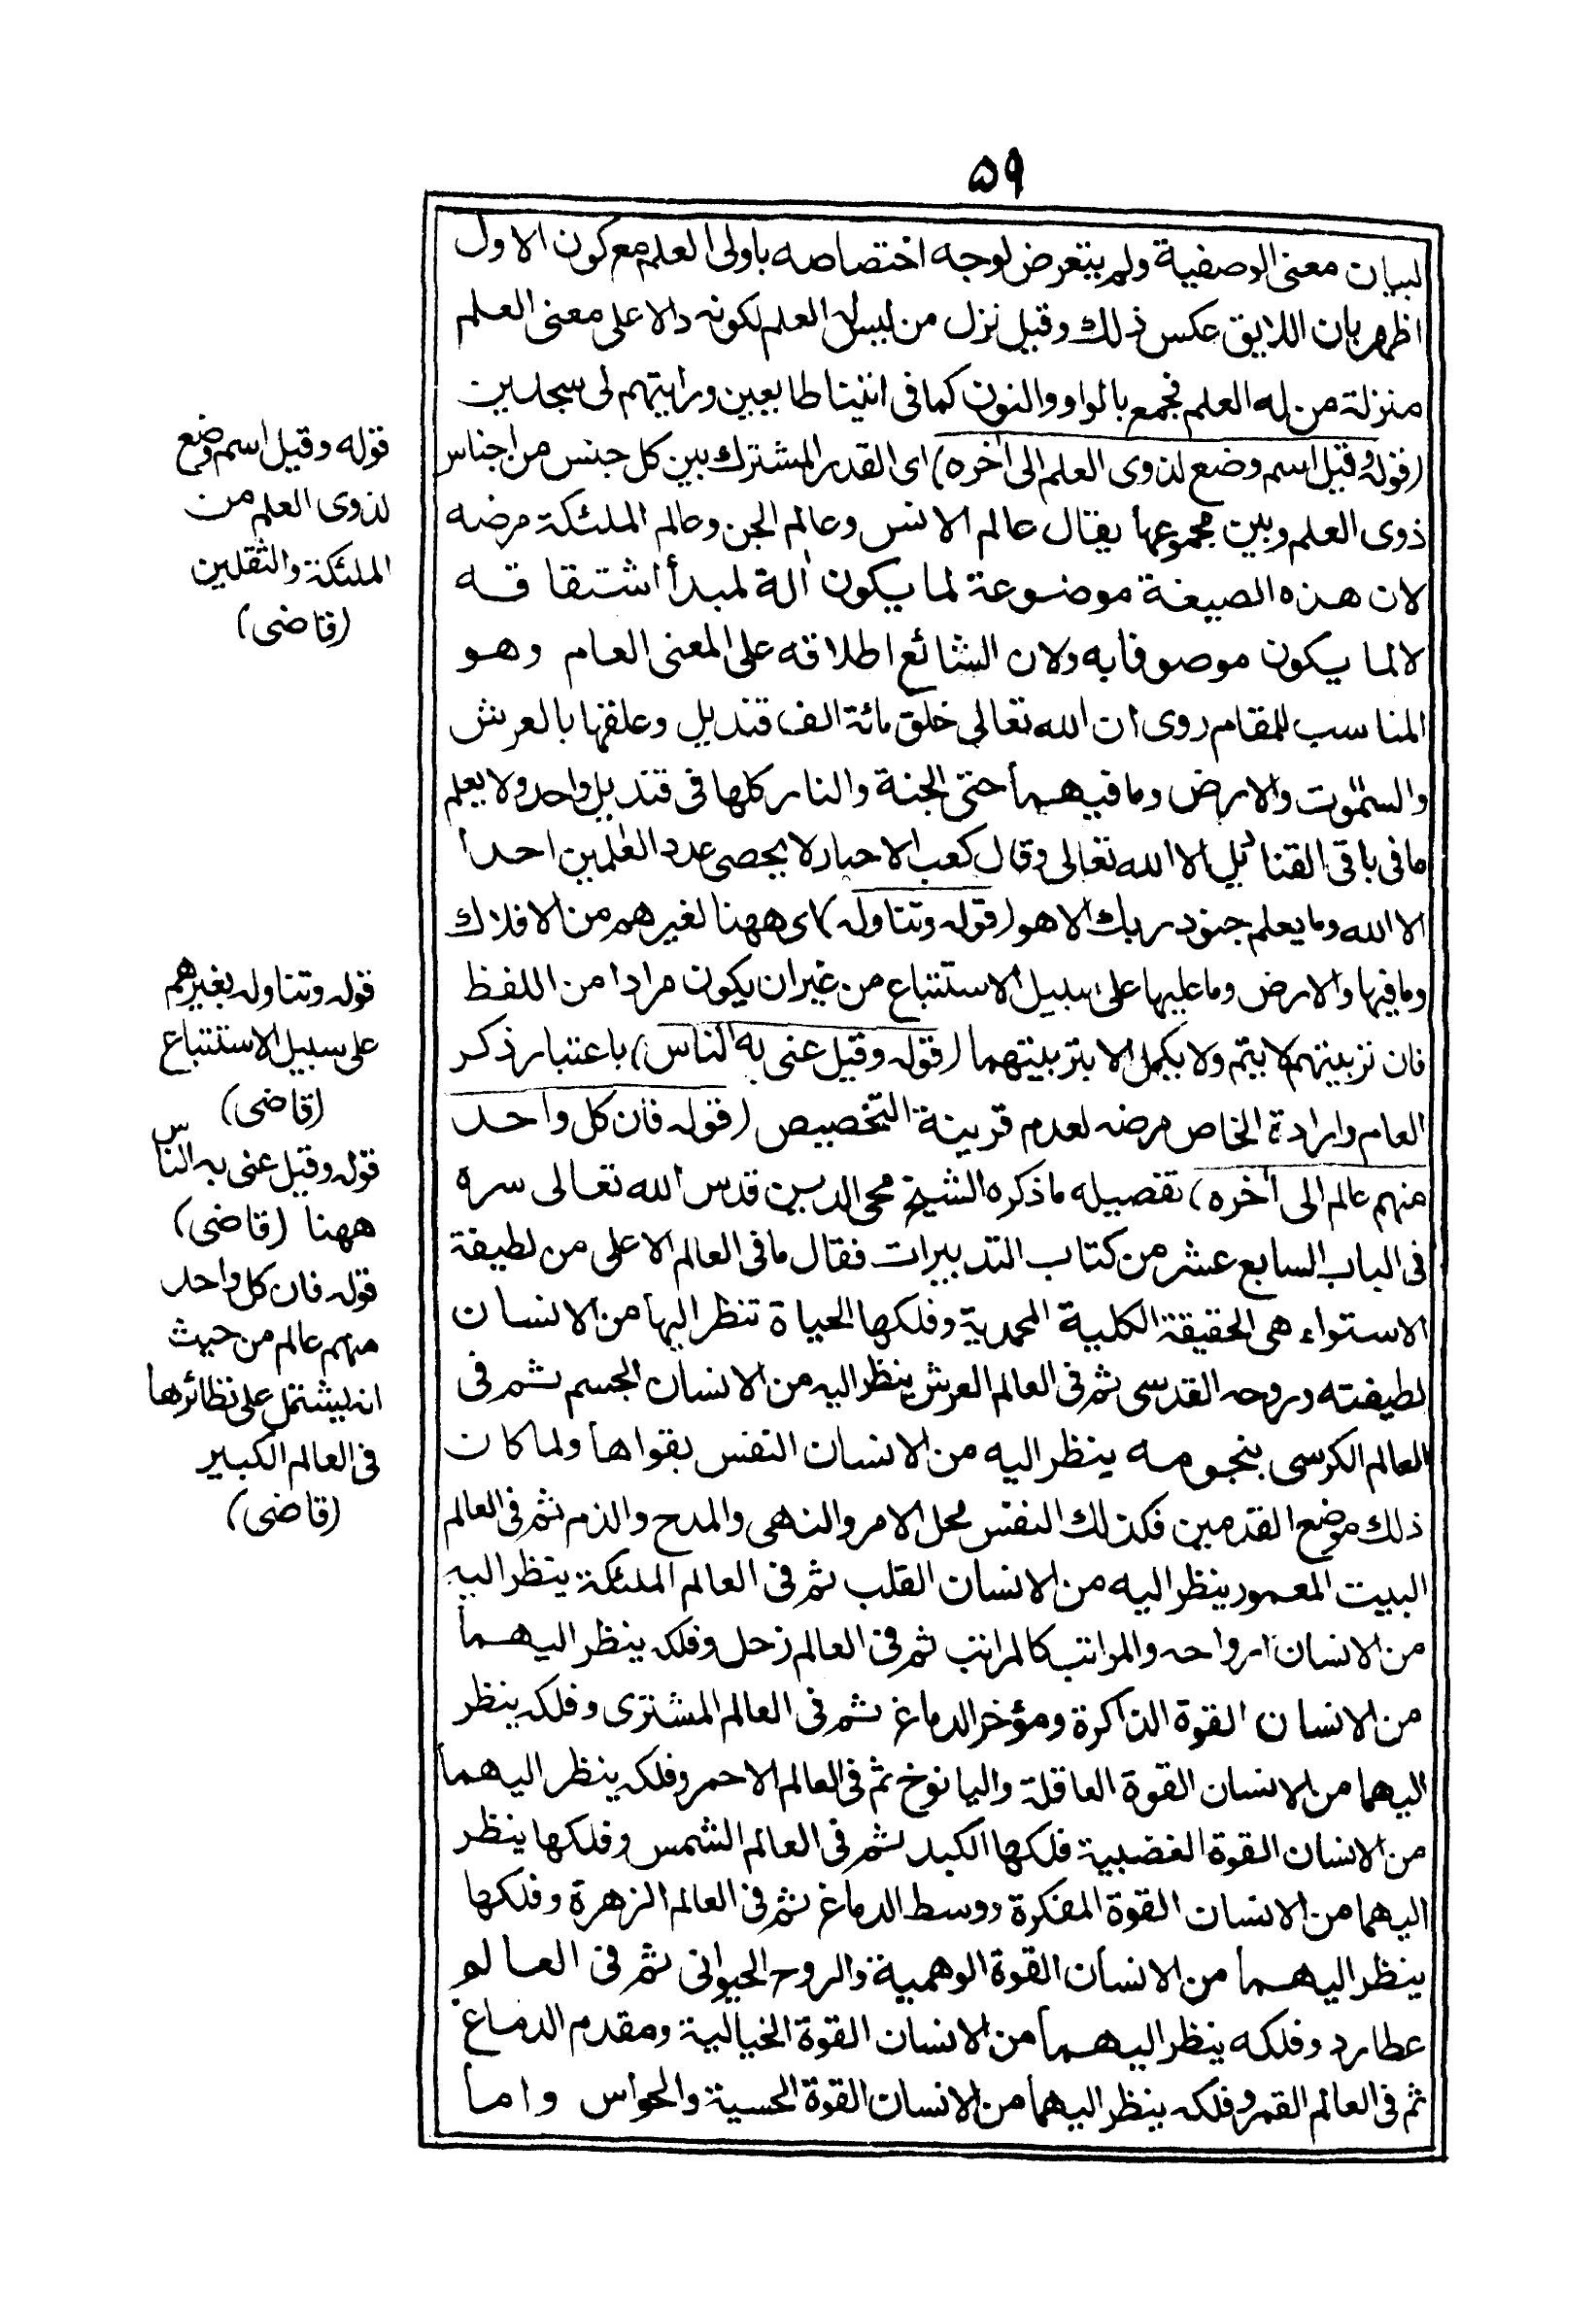 ٥٩
لبيان معنى الوصفية ولم يتعرض لوجه اختصاصه باولى العلم مع كون الاول
اظهر بان اللايق عكس ذلك وقيل نزل من ليس له العلم لكونه دالا على معنى العلم
منزلة من له العلم فجمع بالواو والنون كما في اتينا طايعين ورايتهم لى سجدين
(قوله وقيل اسم وضع لذوى العلم الى آخره) اى القدر المشترك بين كل جنس من اجناس
ذوى العلم وبين مجموعها يقال عالم الانس وعالم الجن وعالم الملئكة مرضه
لان هذه الصيغة موضوعة لما يكون آلة لمبدأ اشتقاقه
لا لما يكون موصوفا به ولان الشائع اطلاقه على المعنى العام وهو
المناسب للمقام روى ان الله تعالى خلق مائة الف قنديل وعلقها بالعرش
والسمٰوت والارض وما فيهما حتى الجنة والنار كلها في قنديل واحد ولا يعلم
ما فى باقى القناديل الا الله تعالى وقال كعب الاحبار لا يحصى عدد العٰلمين احدا
الا الله وما يعلم جنود ربك الا هو (قوله وتناوله) اى ههنا لغيرهم من الافلاك
وما فيها والارض وما عليها على سبيل الاستتباع من غير ان يكون مرادا من اللفظ
فان تربيتهم لا يتم ولا يكمل الا بتربيتهما (قوله وقيل عنى به الناس) باعتبار ذكر
العام وارادة الخاص مرضه لعدم قرينة التخصيص (قوله فان كل واحد
منهم عالم الى آخره) تفصيله ما ذكره الشيخ محى الدين قدس الله تعالى سره
فى الباب السابع عشر من كتاب التدبيرات فقال ما فى العالم الاعلى من لطيفة
الاستواء هى الحقيقة الكلية المحمدية وفلكها الحياة تنظر اليها من الانسان
لطيفته وروحه القدسى ثم فى العالم العرش ينظر اليه من الانسان الجسم ثم فى
العالم الكرسى بنجومه ينظر اليه من الانسان النفس بقواها ولما كان
ذلك موضع القدمين فكذلك النفس محل الامر والنهى والمدح والذم ثم فى العالم
البيت المعمور ينظر اليه من الانسان القلب ثم فى العالم الملئكة ينظر اليه
من الانسان ارواحه والمراتب كالمراتب ثم فى العالم زحل وفلكه ينظر اليهما
من الانسان القوة الذاكرة ومؤخر الدماغ ثم فى العالم المشترى وفلكه ينظر
اليهما من الانسان القوة العاقلة واليانوخ ثم فى العالم الاحمر وفلكه ينظر اليهما
من الانسان القوة الغضبية فلكها الكبد ثم فى العالم الشمس وفلكها ينظر
اليهما من الانسان القوة المفكرة ووسط الدماغ ثم فى العالم الزهرة وفلكها
ينظر اليهما من الانسان القوة الوهمية والروح الحيوانى ثم فى العالم
عطارد وفلكه ينظر اليهما من الانسان القوة الخيالية ومقدم الدماغ
ثم فى العالم القمر وفلكه ينظر اليهما من الانسان القوة الحسية والحواس واما
قوله وقيل اسم وضع
لذوى العلم من
الملئكة والثقلين
(قاضى)
قوله وتناوله بغيرهم
على سبيل الاستتباع
(قاضى)
قوله وقيل عنى به الناس
ههنا (قاضى)
قوله فان كل واحد
منهم عالم من حيث
انه يشتمل على نظائرها
فى العالم الكبير
(قاضى)